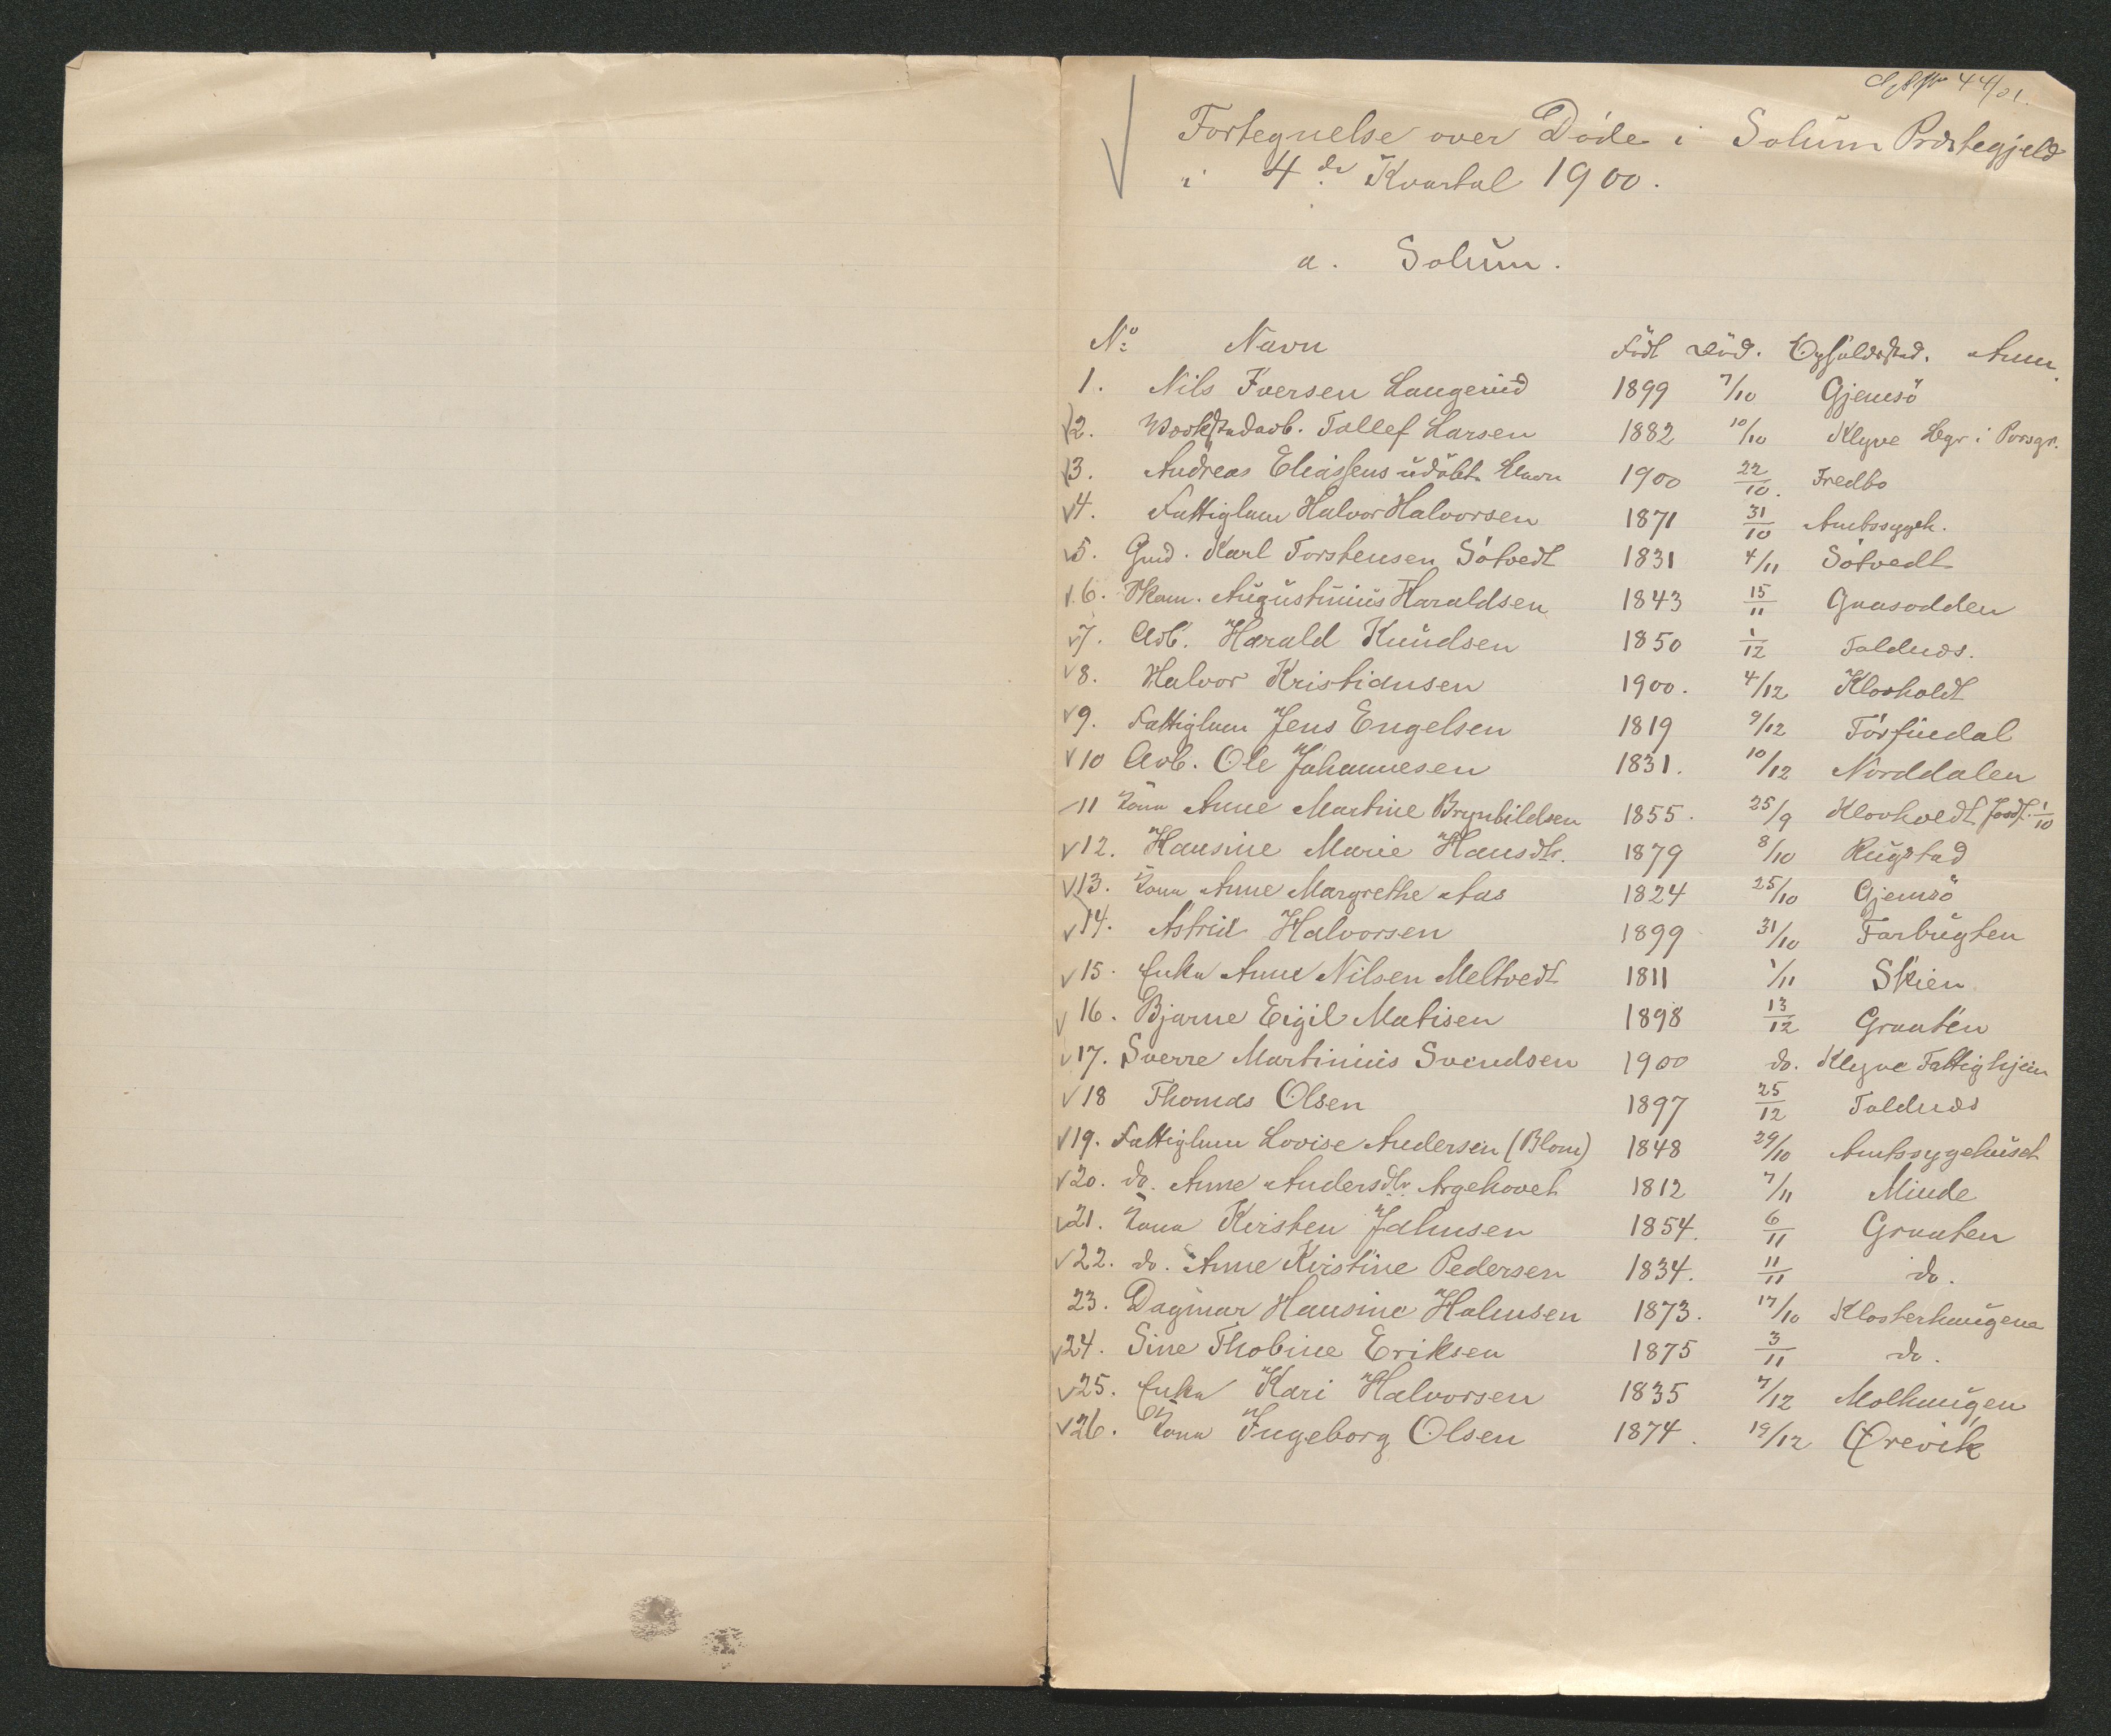 44/01.
Fortegnelse over Døde i Solum Præstegjeld
i 4de Kvartal 1900.
a. Solum.
No Navn Født Død. Opholdsstad. Anm.
1. Nils Iversen Langerud 1899 7/10 Gjemsö
2. Værkstadarb. Tollef Larsen 1882 10/10 Klyve Bgr i Porsgr.
3. Andreas Eliassens udøbt. Barn 1900 22/10. Fredbo
4. Fattiglem Halvor Halvorsen 1871 31/10 Amtssygeh.
5. Gmd. Karl Torstensen Sötvedt 1831 4/11 Sötvedt
6. Skom. Augustinius Haraldsen 1843 15/11 Gaasodden
7. Arb. Harald Knudsen 1850 1/12 Toldnæs.
8. Halvor Kristiansen 1900. 4/12 Klovholdt
9. Fattiglem Jens Engelsen 1819 9/12 Törfindal
10 Arb. Ole Johannesen 1831. 10/12 Norddalen
11 Kone Anne Martine Brynhildsen 1855. 25/9 Klovholdt Jordf. 1/10
12. Hansine Marie Hansdtr. 1879 8/10 Rugstad
13. Kone Anne Margrethe Aas 1824 25/10 Gjemsö
14. Astrid Halvorsen 1899 31/10 Farbugten
15. Enke Anne Nilsen Meltvedt 1811 1/11 Skien
16. Bjarne Eigil Matisen 1898 13/12 Graaten
17. Sverre Martinius Svendsen 1900 do. Klyve Fattighjem
18 Thomas Olsen 1897 25/12 Toldnæs
19. Fattiglem Lovise Andersen (Blom) 1848 29/10 Amtssygehuset
20. do. Anne Andersdtr. Argehovet 1812 7/11 Minde
21. Kone Kirsten Johnsen 1854. 6/11 Graaten
22. do. Anne Kirstine Pedersen 1834. 11/11 do.
23. Dagmar Hansine Halmsen 1873. 17/10 Klosterhaugene
24. Sine Thobine Eriksen 1875 3/11 do.
25. Enke Kari Halvorsen 1835 7/12 Molhaugen
26. Kone Ingeborg Olsen 1874. 19/12 Ørevik